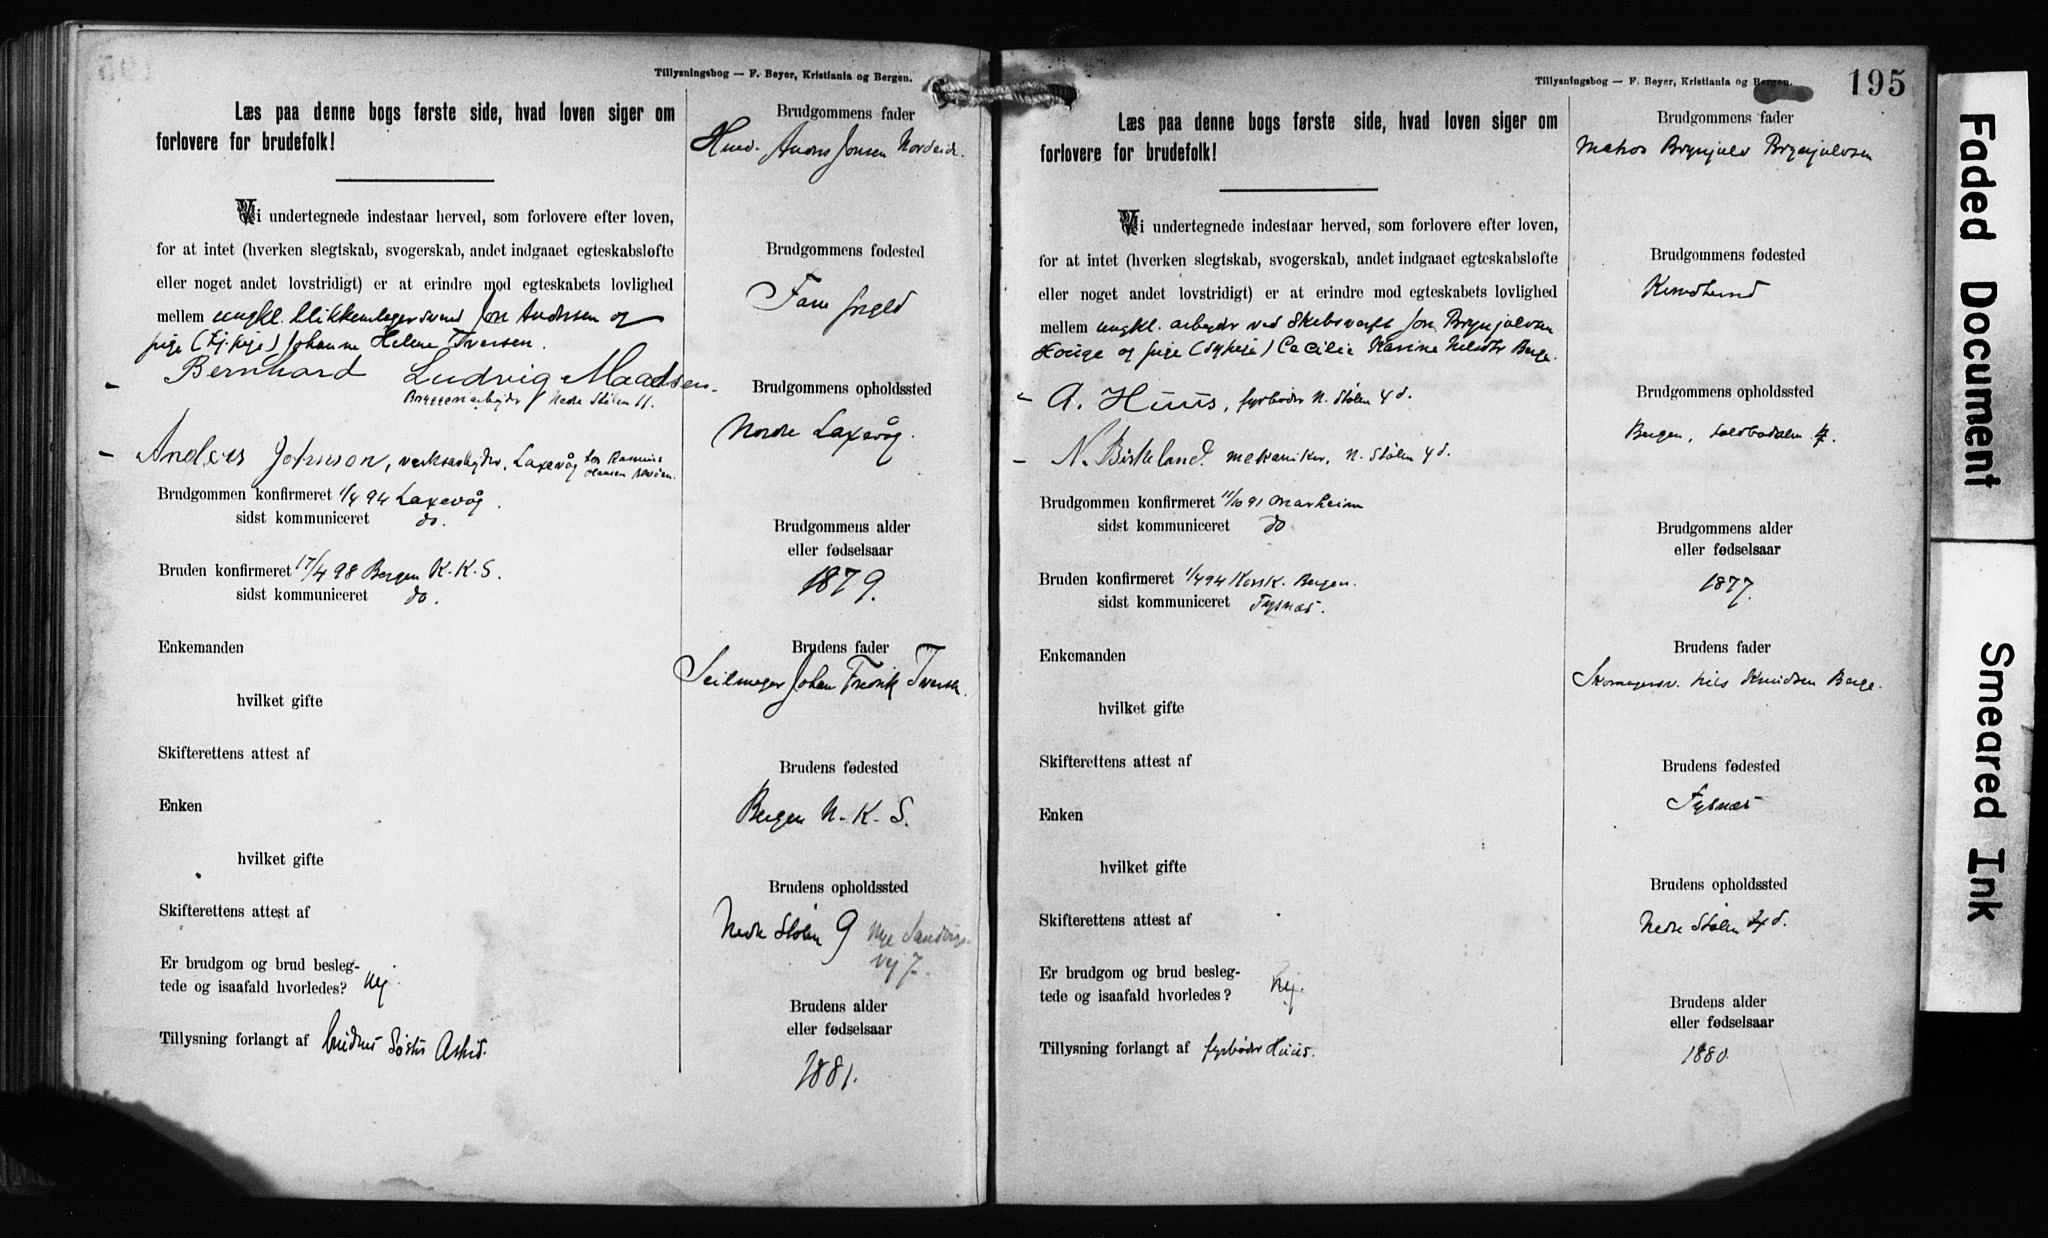 Tillysningsbog — F. Beyer, Kristiania og Bergen.
Læs paa denne bogs første side, hvad loven siger om
forlovere for brudefolk!
Vi undertegnede indestaar herved, som forlovere efter loven,
for at intet (hverken slegtskab, svogerskab, andet indgaaet egteskabsløfte
eller noget andet lovstridigt) er at erindre mod egteskabets lovlighed
mellem ungkl. blikkenslagersvend Jon Andersen og
pige (tj.pige) Johanne Helene Iversen.
Bernhard Ludvig Madsen
Bryggeriarbejder Nedre Stølen 11.
Anders Johnson, verksarbejder, Laxevåg
Brudgommen konfirmeret 1/4 94 Laxevåg.
sidst kommuniceret do.
Bruden konfirmeret 17/4 98 Bergen K.K.S.
sidst kommuniceret do.
Enkemanden
hvilket gifte
Skifterettens attest af
Enken
hvilket gifte
Skifterettens attest af
Er brudgom og brud besleg-
tede og isaafald hvorledes? Nej.
Tillysning forlangt af brudens søster
Brudgommens fader
Husm. Anders Jonsen Nordeide.
Brudgommens fødested
Fane prgld
Brudgommens opholdssted
Nordre Laxevåg.
Brudgommens alder
eller fødselsaar
1879.
Brudens fader
Seilmager Johan Fredrik Iversen.
Brudens fødested
Bergen N.K.S.
Brudens opholdssted
Nedre Stølen 9 Nye Sandvigs-
vej 7.
Brudens alder
eller fødselsaar
1881.
Tillysningsbog — F. Beyer, Kristiania og Bergen.
195
Læs paa denne bogs første side, hvad loven siger om
forlovere for brudefolk!
Vi undertegnede indestaar herved, som forlovere efter loven,
for at intet (hverken slegtskab, svogerskab, andet indgaaet egteskabsløfte
eller noget andet lovstridigt) er at erindre mod egteskabets lovlighed
mellem ungkl. arbejder ved Skibsverft Jon Brynjulvsen
Houge og pige (sypige) Cecilie Karine Nilsdtr Berge.
A. Huus, fyrbøder N. Stølen 4 d.
N. Birkeland. mekaniker, N. Stølen 4 d.
Brudgommen konfirmeret 11/10 91
sidst kommuniceret do
Bruden konfirmeret 1/4 94 Korsk. Bergen.
sidst kommuniceret Tysnæs.
Enkemanden
hvilket gifte
Skifterettens attest af
Enken
hvilket gifte
Skifterettens attest af
Er brudgom og brud besleg-
tede og isaafald hvorledes? Nej.
Tillysning forlangt af fyrbøder Huus.
Brudgommens fader
Matros Brynjulv Brynjulvsen
Brudgommens fødested
Kvindherred
Brudgommens opholdssted
Bergen,
Brudgommens alder
eller fødselsaar
1877.
Brudens fader
Skomagersv. Nils Knudsen Berge.
Brudens fødested
Tysnæs
Brudens opholdssted
Nedre Stølen 4 d.
Brudens alder
eller fødselsaar
1880.
Faded Document
Smeared Ink